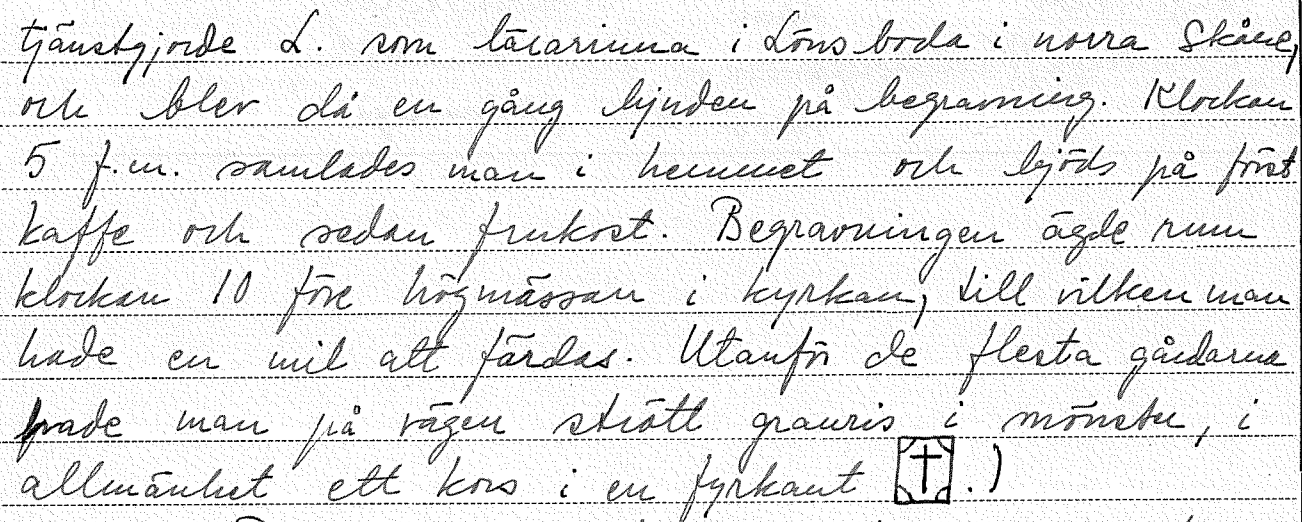 tjänstgjorde L. som lärarinna i Lönsboda i norra Skåne,
och blev då en gång bjuden på begravning. Klockan
5 f.m. samlades man i hemmet och bjöds på först
kaffe och sedan frukost. Begravningen ägde rum
klockan 10 före högmässan i kyrkan, till vilken man
hade en mil att färdas. Utanför de flesta gårdarna
hade man på vägen strött granris i mönster, i
allmänhet ett kors i en fyrkant .)